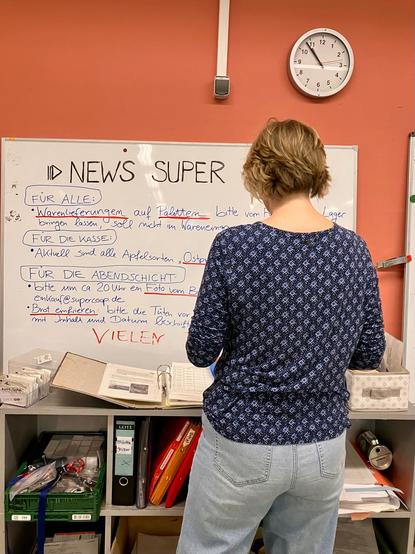 NEWS SUPER
FÜR ALLE:
• Warenlieferungen auf Paletten bitte vom Lager
bringen lassen, soll nicht im Wareneing
FÜR DIE KASSE:
• Aktuell sind alle Apfelsorten „Ostp
FÜR DIE ABENDSCHICHT
• bitte um ca 20 Uhr ein Foto vom B
einkauf@supercoop.de
• Brot einfrieren: bitte die Tüten vor
mit Inhalt und Datum beschrift
VIELEN
LEITZ